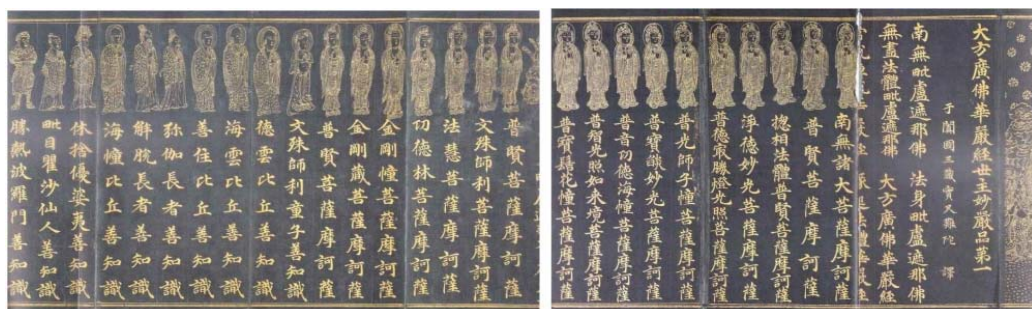 大方廣佛華嚴經世主妙嚴品第一
于闐國三藏實叉難陀 譯
南無毗盧遮那佛 法身毗盧遮那佛
無盡法體毗盧遮那佛 大方廣佛華嚴經
南無諸大菩薩摩訶薩
普賢菩薩摩訶薩
捴相法體普賢菩薩摩訶薩
淨德妙光菩薩摩訶薩
普德最勝燈光照菩薩摩訶薩
普光師子幢菩薩摩訶薩
普寶燄妙光菩薩摩訶薩
普音功德海幢菩薩摩訶薩
普智光照如來境菩薩摩訶薩
普寶髻花幢菩薩摩訶薩
普賢菩薩摩訶薩
文殊師利菩薩摩訶薩
法慧菩薩摩訶薩
功德林菩薩摩訶薩
金剛幢菩薩摩訶薩
金剛藏菩薩摩訶薩
普賢菩薩摩訶薩
文殊師利童子善知識
德雲比丘善知識
海雲比丘善知識
善住比丘善知識
弥伽長者善知識
解脫長者善知識
海幢比丘善知識
休捨優婆夷善知識
毗目瞿沙仙人善知識
勝熱波羅門善知識